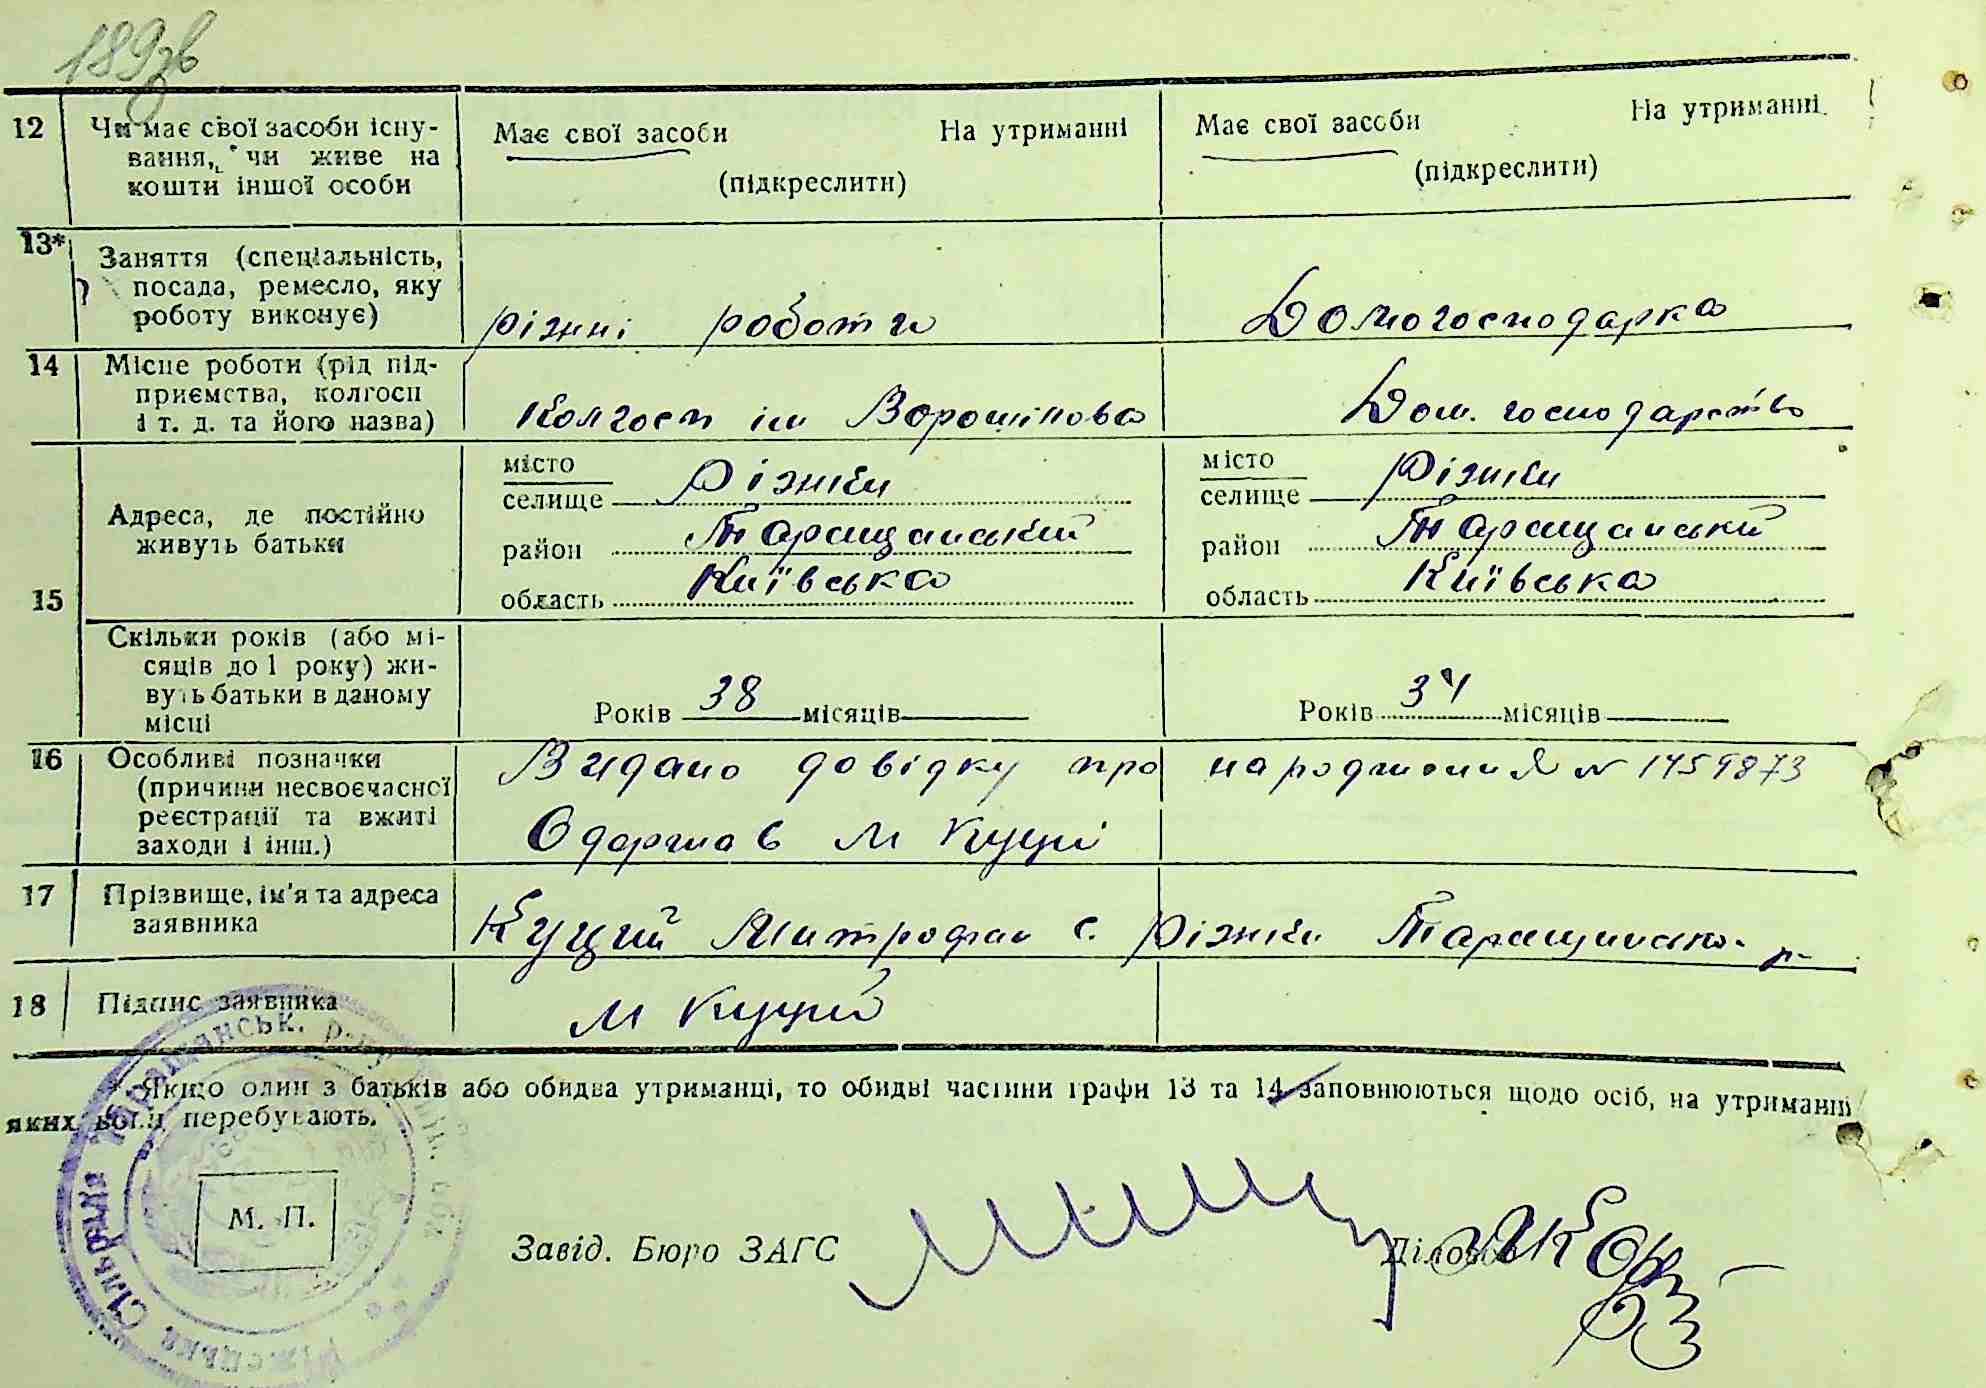 189зв
12
Чи має свої засоби існу-
вання, чи живе на
кошти іншої особи
Має свої засоби На утриманні
(підкреслити)
Має свої засоби На утриманні
(підкреслити)
13*
Заняття (спеціальність,
посада, ремесло, яку
роботу виконує)
різні роботи
Домогосподарка
14
Місце роботи (рід під-
приємства, колгосп
і т. д. та його назва)
Колгосп ім Ворошілова
Дом. господарство
15
Адреса, де постійно
живуть батьки
місто
селище Ріжки
район Таращанський
область Київська
місто
селище Ріжки
район Таращанський
область Київська
Скільки років (або мі-
сяців до 1 року) жи-
вуть батьки в даному
місці
Років 38 місяців
Років 34 місяців
16
Особливі позначки
(причини несвоєчасної
реєстрації та вжиті
заходи і інш.)
Видано довідку про народження № 1459873
Одержав М Куций
17
Прізвище, ім'я та адреса
заявника
Куций Митрофан с. Ріжки Таращанськ. р-
18
Підпис заявника
М Куций
* Якщо один з батьків або обидва утриманці, то обидві частини графи 13 та 14 заповнюються щодо осіб, на утриманні
яких вони перебувають.
М. П.
Завід. Бюро ЗАГС
Діловод
Сільрада Таращанськ. р-ну